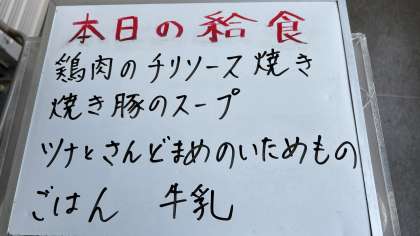 本日の給食
鶏肉のチリソース焼き
焼き豚のスープ
ツナとさんどまめのいためもの
ごはん　牛乳